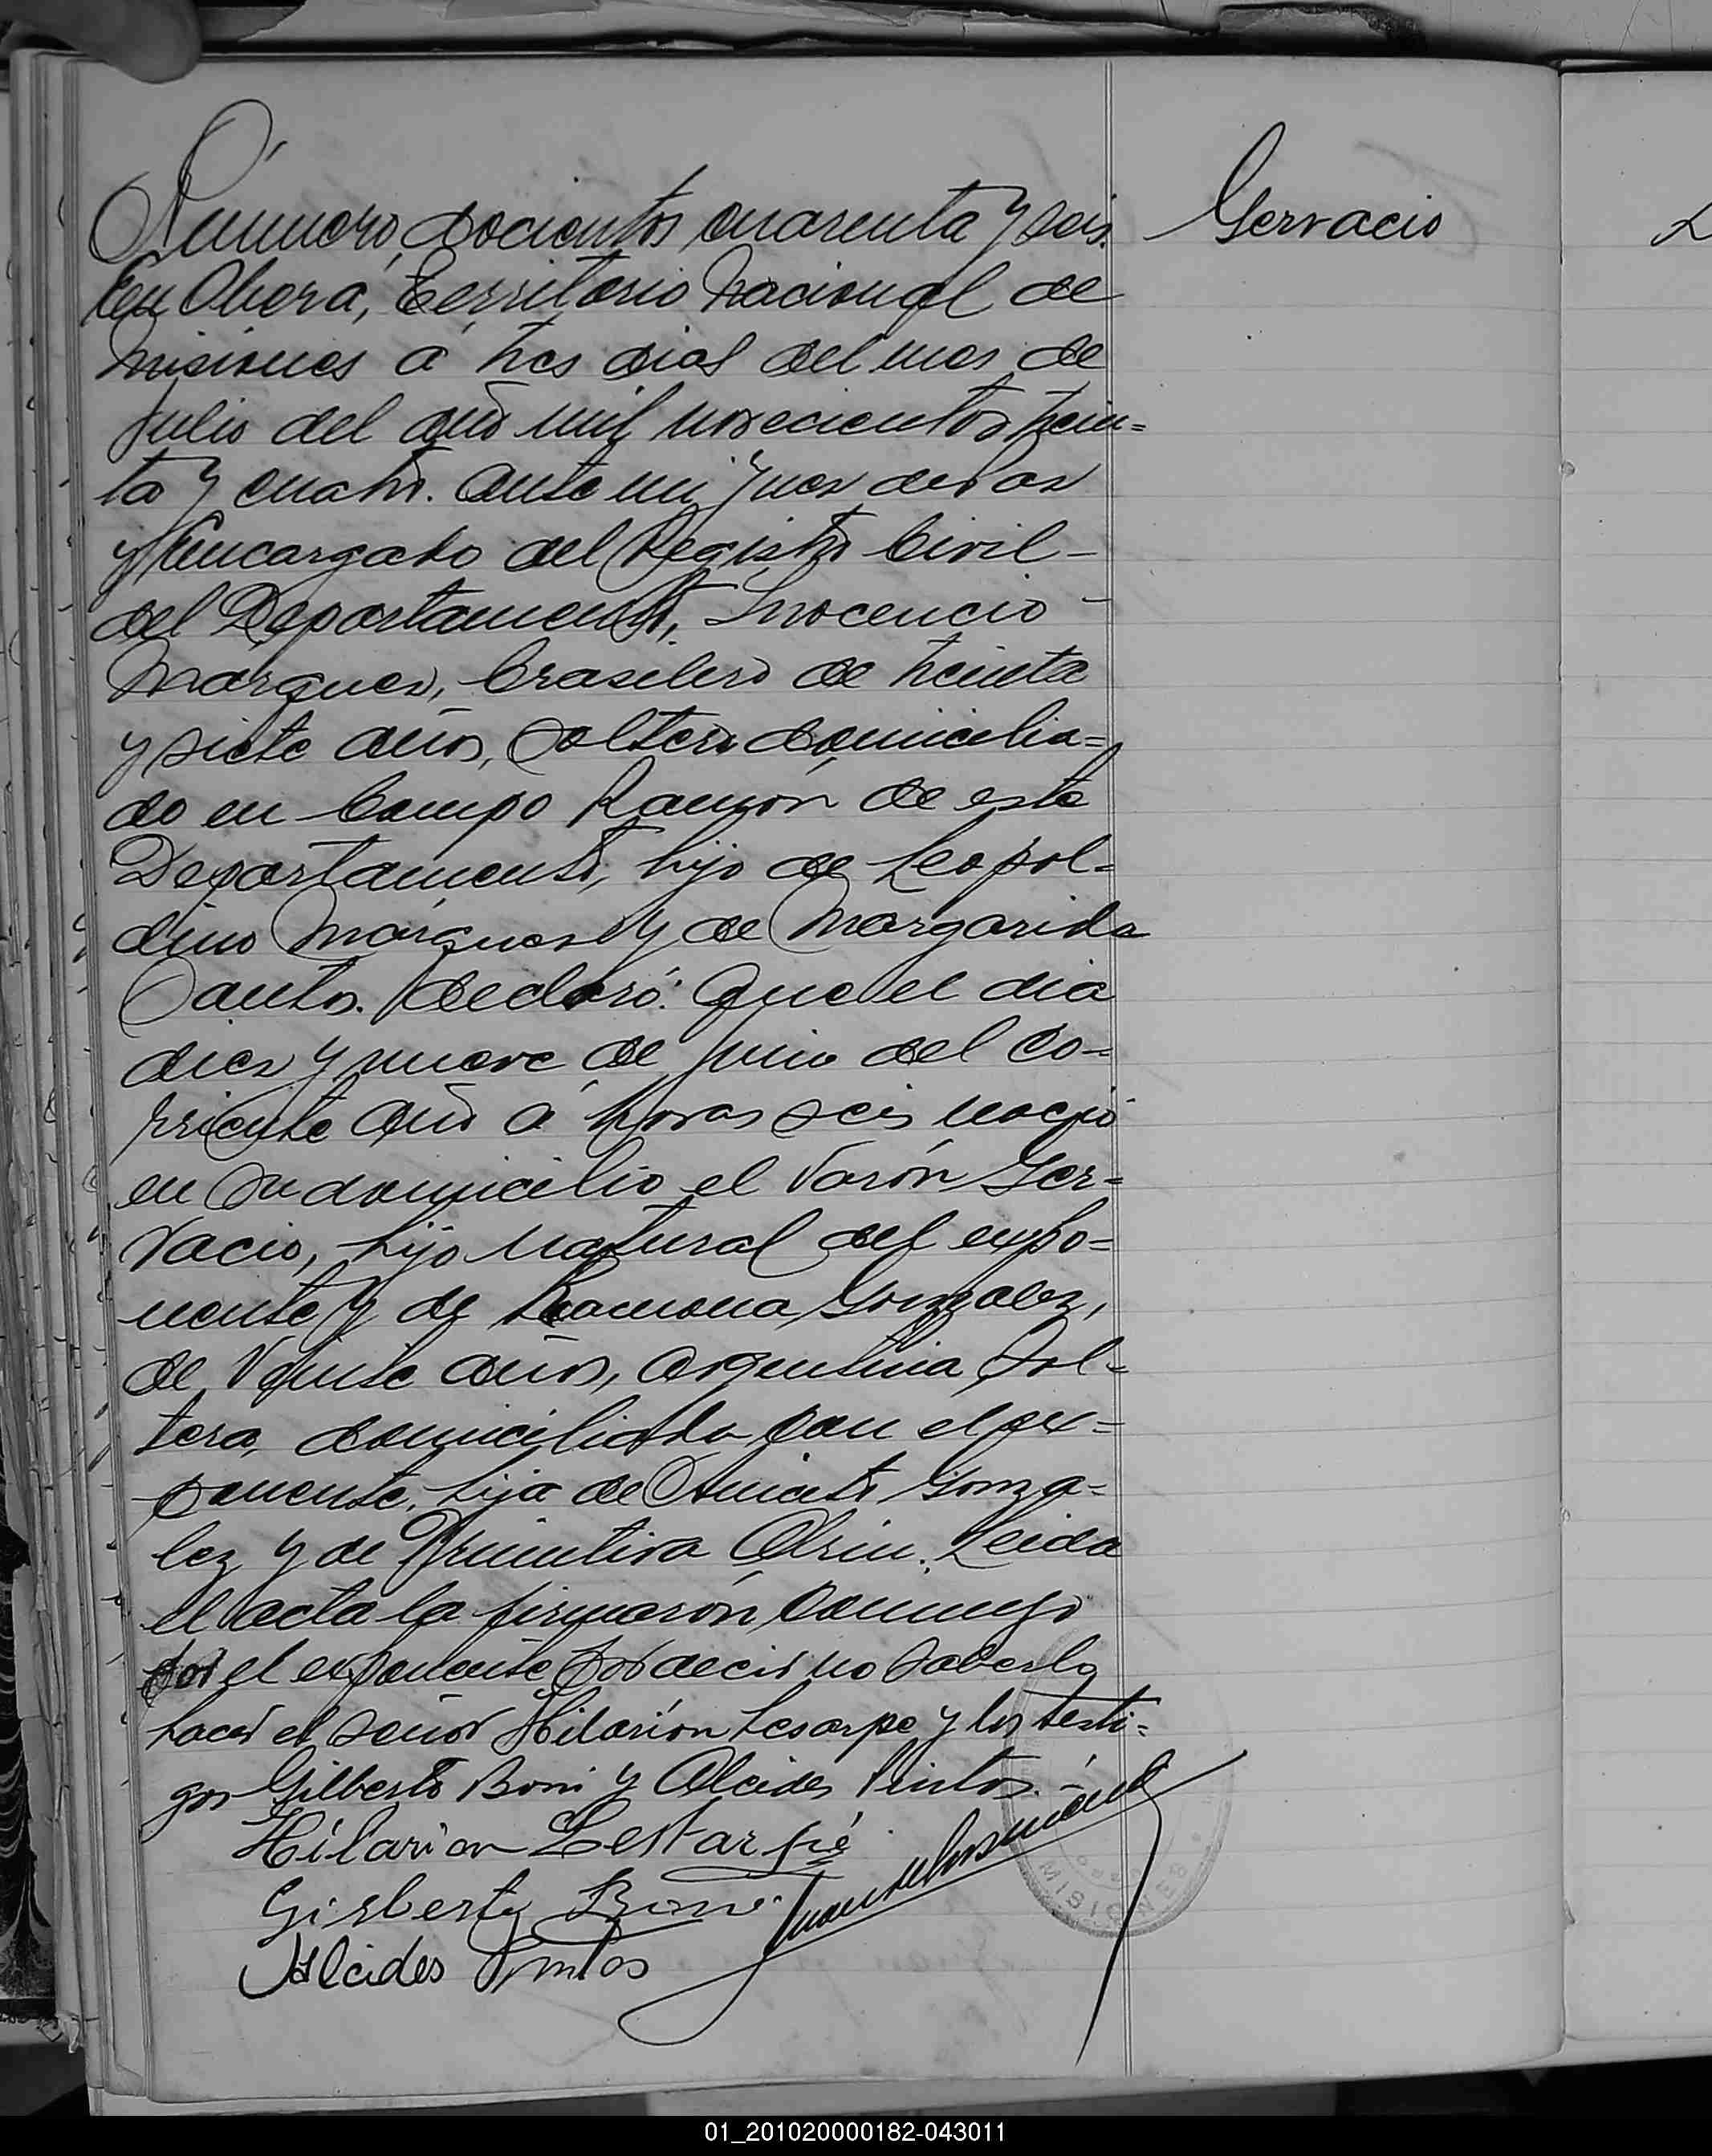 Número, docientos cuarenta y seis.
Gervacio
En Oberá, Territorio Nacional de
Misiones a tres dias del mes de
Julio del año mil novecientos trein=
ta y cuatro. ante mi Juez de Paz
y Encargado del Registro Civil -
del Departamento, Inocencio -
Marques, brasilero de treinta
y siete años, soltero domicilia=
do en Campo Ramón de este
Departamento, hijo de Leopol=
dino Marques y de Margarida
Santos. declaró: Que el dia
diez y nueve de Junio del co=
rriente año a horas seis nació
en su domicilio el varón Ger=
vacio, hijo natural del expo=
nente y de Ramona Gonzalez,
de veinte años, argentina sol=
tera, domiciliada con el ex=
ponente, hija de Aniceto Gonza=
lez y de Primitiva Leida
el acta la firmarón conmigo
por el exponente por decir no saberlo
hacer el señor Hilarión Lesarpe y los testi=
gos Gilberto Boni y Alcides Pintos. -
Hilarion Lestarpé
Gisberto Boni
Alcides Pintos
MISIONES
01_201020000182-043011